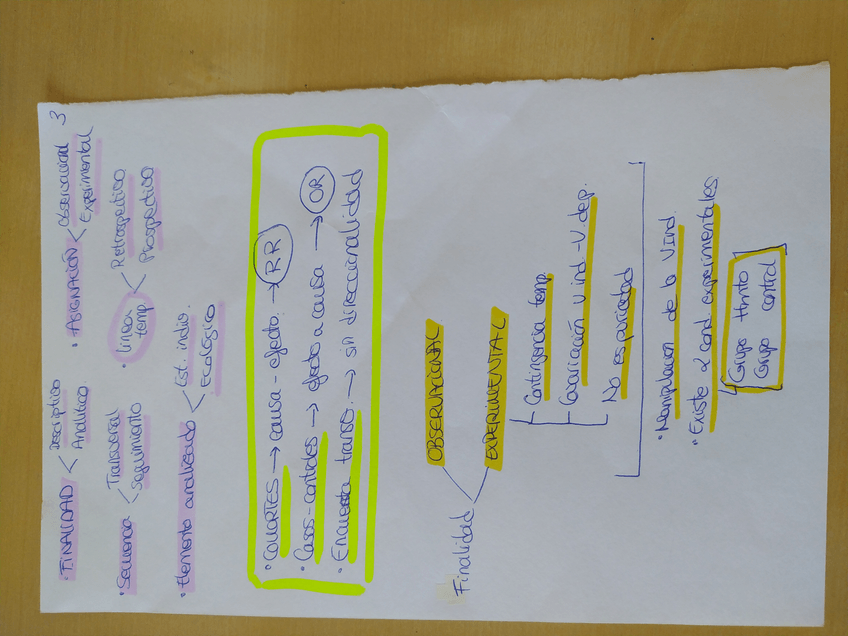 3
• FINALIDAD < Descriptivo
Analítico
• ASIGNACIÓN < Observacional
Experimental
• Secuencia < Transversal
Seguimiento
• Línea temp. < Retrospectivo
Prospectivo
• Elemento analizado < Est. indiv.
Ecológico
• COHORTES → causa - efecto. → RR
• Casos - controles → efecto a causa → OR
• Encuesta transv. → sin direccionalidad
Finalidad
OBSERVACIONAL
EXPERIMENTAL
Contingencia temp.
Covariación v ind. - V. dep.
No espuriedad
• Manipulación de la V ind.
• Existe 2 cond. experimentales
Grupo ttmto
Grupo control